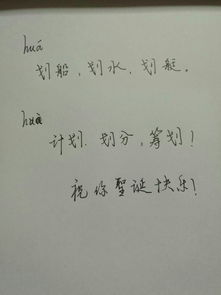 huá
划船，划水，划艇。
huà
计划，划分，筹划！
祝你聖诞快乐！